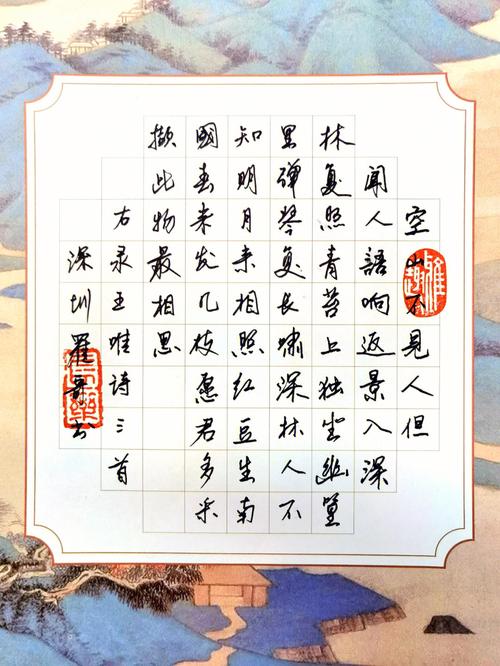 空山不見人但
闻人語响返景入深
林复照青苔上独坐幽篁
里弹琴复长啸深林人不
知明月来相照红豆生南
國春来发几枝愿君多采
撷此物最相思
右录王唯诗三首
深圳羅哥书
雅趣